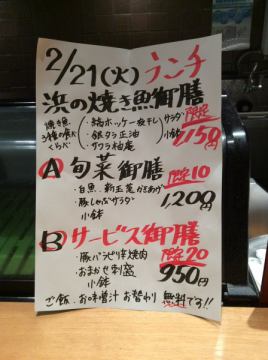 2/21(火) ランチ
浜の焼き魚御膳
焼き魚 3種の食べくらべ
・縞ホッケ一夜干し
・銀タラ正油
・サワラ柚庵
サラダ
小鉢
限定
1,150円
A 旬菜御膳 限定10
・白魚、新玉葱かきあげ
・豚しゃぶサラダ
小鉢
1,200円
B サービス御膳 限定20
・豚バラピリ辛焼肉
・おまかせ刺盛
小鉢
950円
ご飯、お味噌汁お替わり 無料です!!